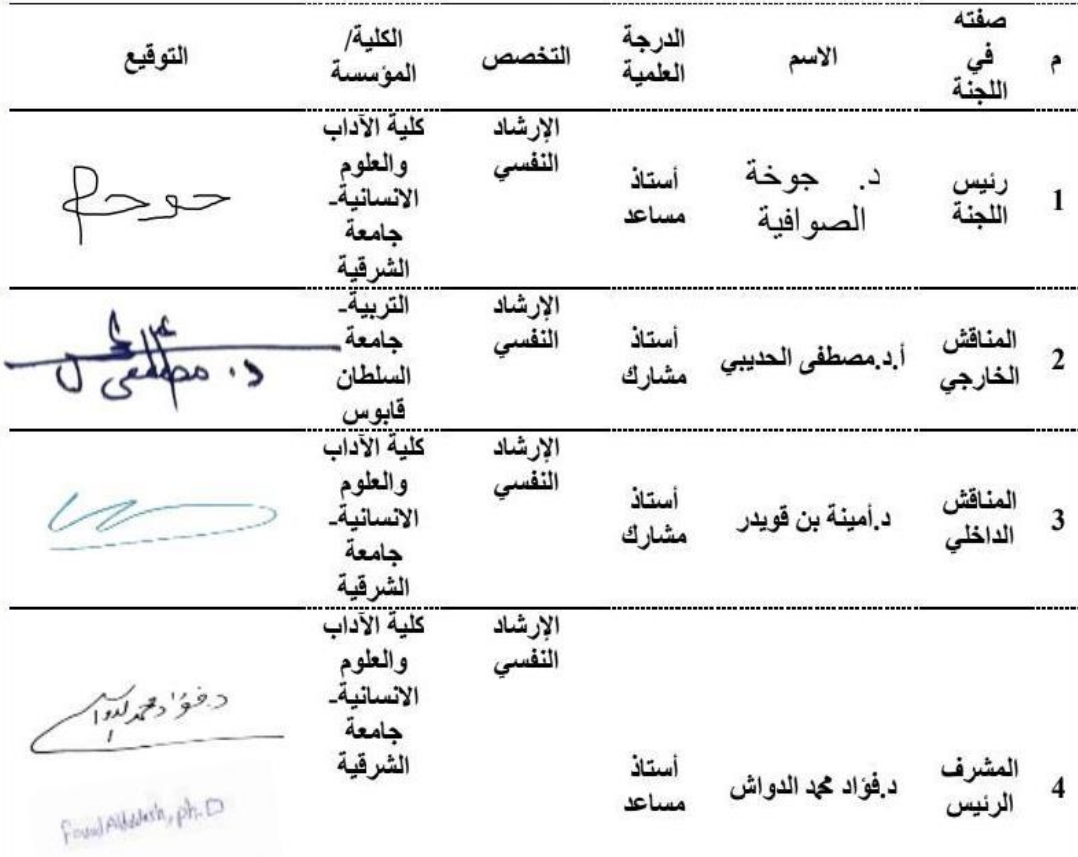 م
صفته
في
اللجنة
الاسم
الدرجة
العلمية
التخصص
الكلية/
المؤسسة
التوقيع
1
رئيس
اللجنة
د. جوخة
الصوافية
أستاذ
مساعد
الإرشاد
النفسي
كلية الآداب
والعلوم
الانسانية-
جامعة
الشرقية
جوخة
2
المناقش
الخارجي
أ.د.مصطفى الحديبي
أستاذ
مشارك
الإرشاد
النفسي
التربية-
جامعة
السلطان
قابوس
د. مصطفى
3
المناقش
الداخلي
د.أمينة بن قويدر
أستاذ
مشارك
الإرشاد
النفسي
كلية الآداب
والعلوم
الانسانية-
جامعة
الشرقية
4
المشرف
الرئيس
د.فؤاد محمد الدواش
أستاذ
مساعد
الإرشاد
النفسي
كلية الآداب
والعلوم
الانسانية-
جامعة
الشرقية
د.فؤاد محمد الدواش
ph.D